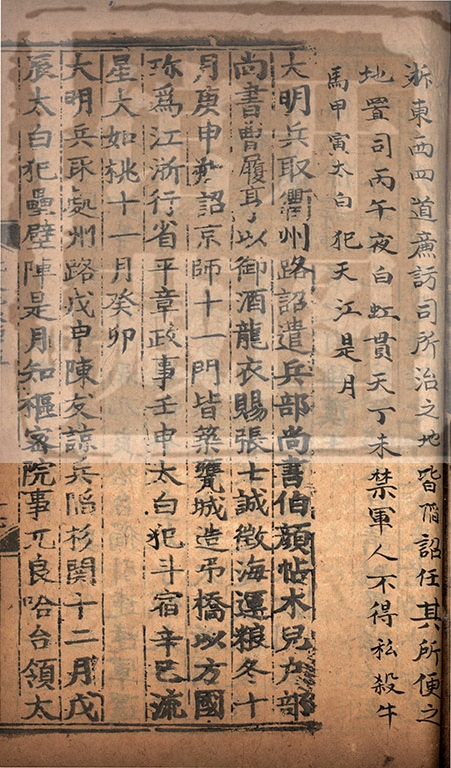 浙東西四道廉訪司所治之地皆陷詔任其所便之
地置司丙午夜白虹貫天丁未禁軍人不得私殺牛
馬甲寅太白犯天江是月
大明兵取衢州路詔遣兵部尚書伯顏帖木兒戶部
尚書曹履亨以御酒龍衣賜張士誠徵海運粮冬十
月庚申朔詔京師十一門皆築甕城造弔橋以方國
珎爲江浙行省平章政事壬申太白犯斗宿辛巳流
星大如桃十一月癸卯
大明兵取處州路戊申陳友諒兵陷杉關十二月戊
辰太白犯壘壁陣是月知樞密院事兀良哈台領太